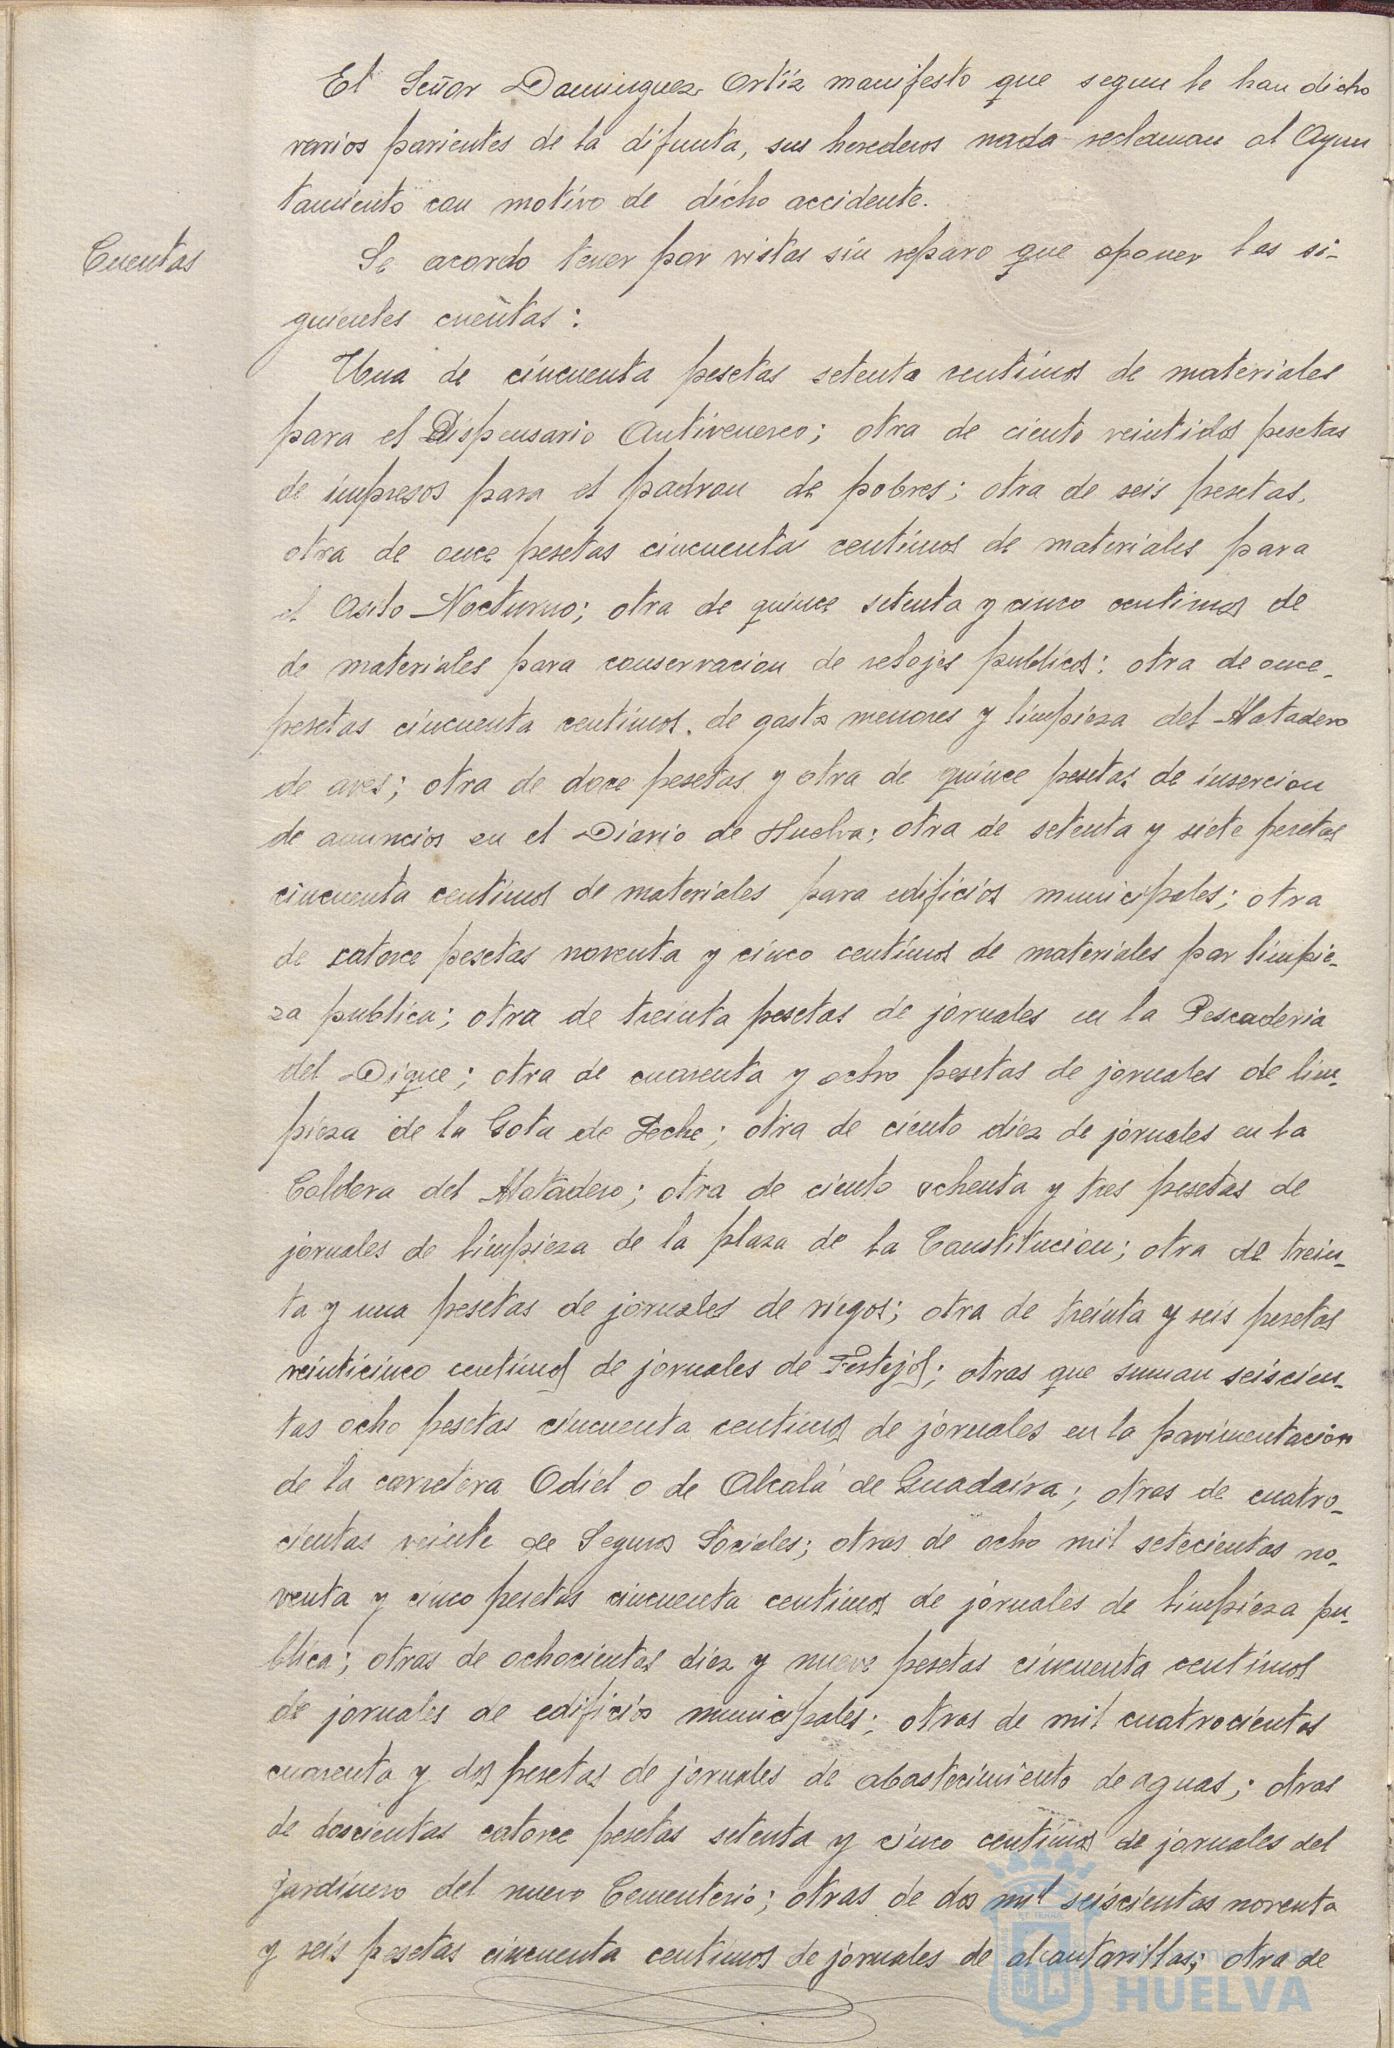 El Señor Dominguez Ortíz manifesto que segun le han dicho
varios parientes de la difunta, sus herederos nada reclaman al Ayun
tamiento con motivo de dicho accidente.
Cuentas
Se acordo tener por vistas sin reparo que oponer las si-
guientes cuentas:
Una de cincuenta pesetas setenta centimos de materiales
para el Dispensario Antivenereo; otra de ciento veintidos pesetas
de impresos para el padron de pobres; otra de seis pesetas,
otra de once pesetas cincuenta centimos de materiales para
el Asilo Nocturno; otra de quince setenta y cinco centimos de
de materiales para conservacion de relojes publicos; otra de once
pesetas cincuenta centimos. de gastos menores y limpieza del Matadero
de aves; otra de doce pesetas y otra de quince pesetas de insercion
de anuncios en el Diario de Huelva; otra de setenta y siete pesetas
cincuenta centimos de materiales para edificios municipales; otra
de catorce pesetas noventa y cinco centimos de materiales par limpie-
za publica; otra de treinta pesetas de jornales en la Pescaderia
del Dique; otra de cuarenta y ocho pesetas de jornales de lim-
pieza de la Gota de Leche; otra de ciento diez de jornales en la
Caldera del Matadero; otra de ciento ochenta y tres pesetas de
jornales de limpieza de la plaza de la Constitucion; otra de trein-
ta y una pesetas de jornales de riegos; otra de treinta y seis pesetas
veinticinco centimos de jornales de Festejos; otras que suman seiscien-
tas ocho pesetas cincuenta centimos de jornales en la pavimentacion
de la carretera Odiel o de Alcalá de Guadaira; otras de cuatro-
cientas veinte de Seguros Sociales; otras de ocho mil setecientas no-
venta y cinco pesetas cincuenta centimos de jornales de limpieza pu-
blica; otras de ochocientas diez y nueve pesetas cincuenta centimos
de jornales de edificios municipales; otras de mil cuatrocientas
cuarenta y dos pesetas de jornales de abastecimiento de aguas; otras
de doscientas catorce pesetas setenta y cinco centimos de jornales del
jardinero del nuevo Cementerio; otras de dos mil seiscientas noventa
y seis pesetas cincuenta centimos de jornales de alcantarillas; otra de
HUELVA